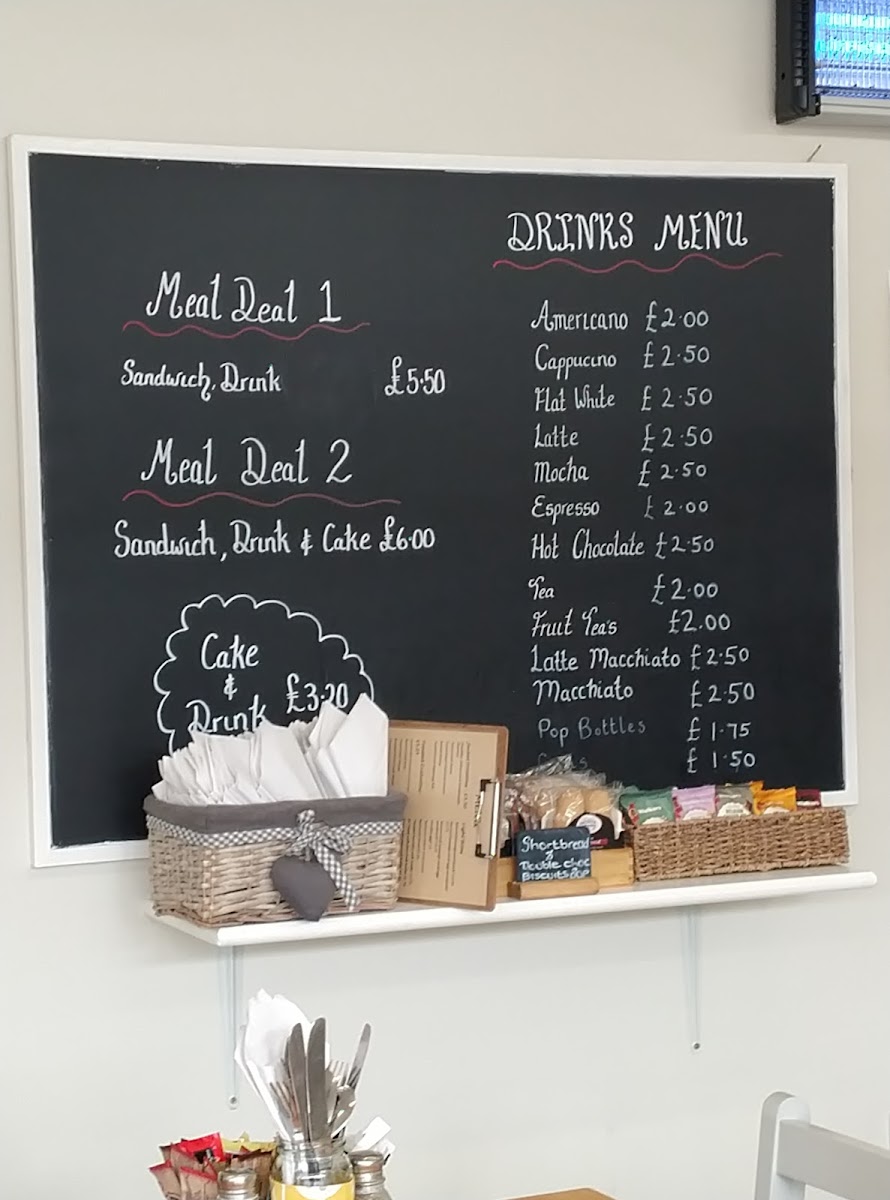 Meal Deal 1
Sandwich, Drink £5.50
Meal Deal 2
Sandwich, Drink & Cake £6.00
Cake
&
Drink £3.20
DRINKS MENU
Americano £2.00
Cappucino £2.50
Flat White £2.50
Latte £2.50
Mocha £2.50
Espresso £2.00
Hot Chocolate £2.50
Tea £2.00
Fruit Tea's £2.00
Latte Macchiato £2.50
Macchiato £2.50
Pop Bottles £1.75
£1.50
Shortbread
&
Double choc
Biscuits 80P